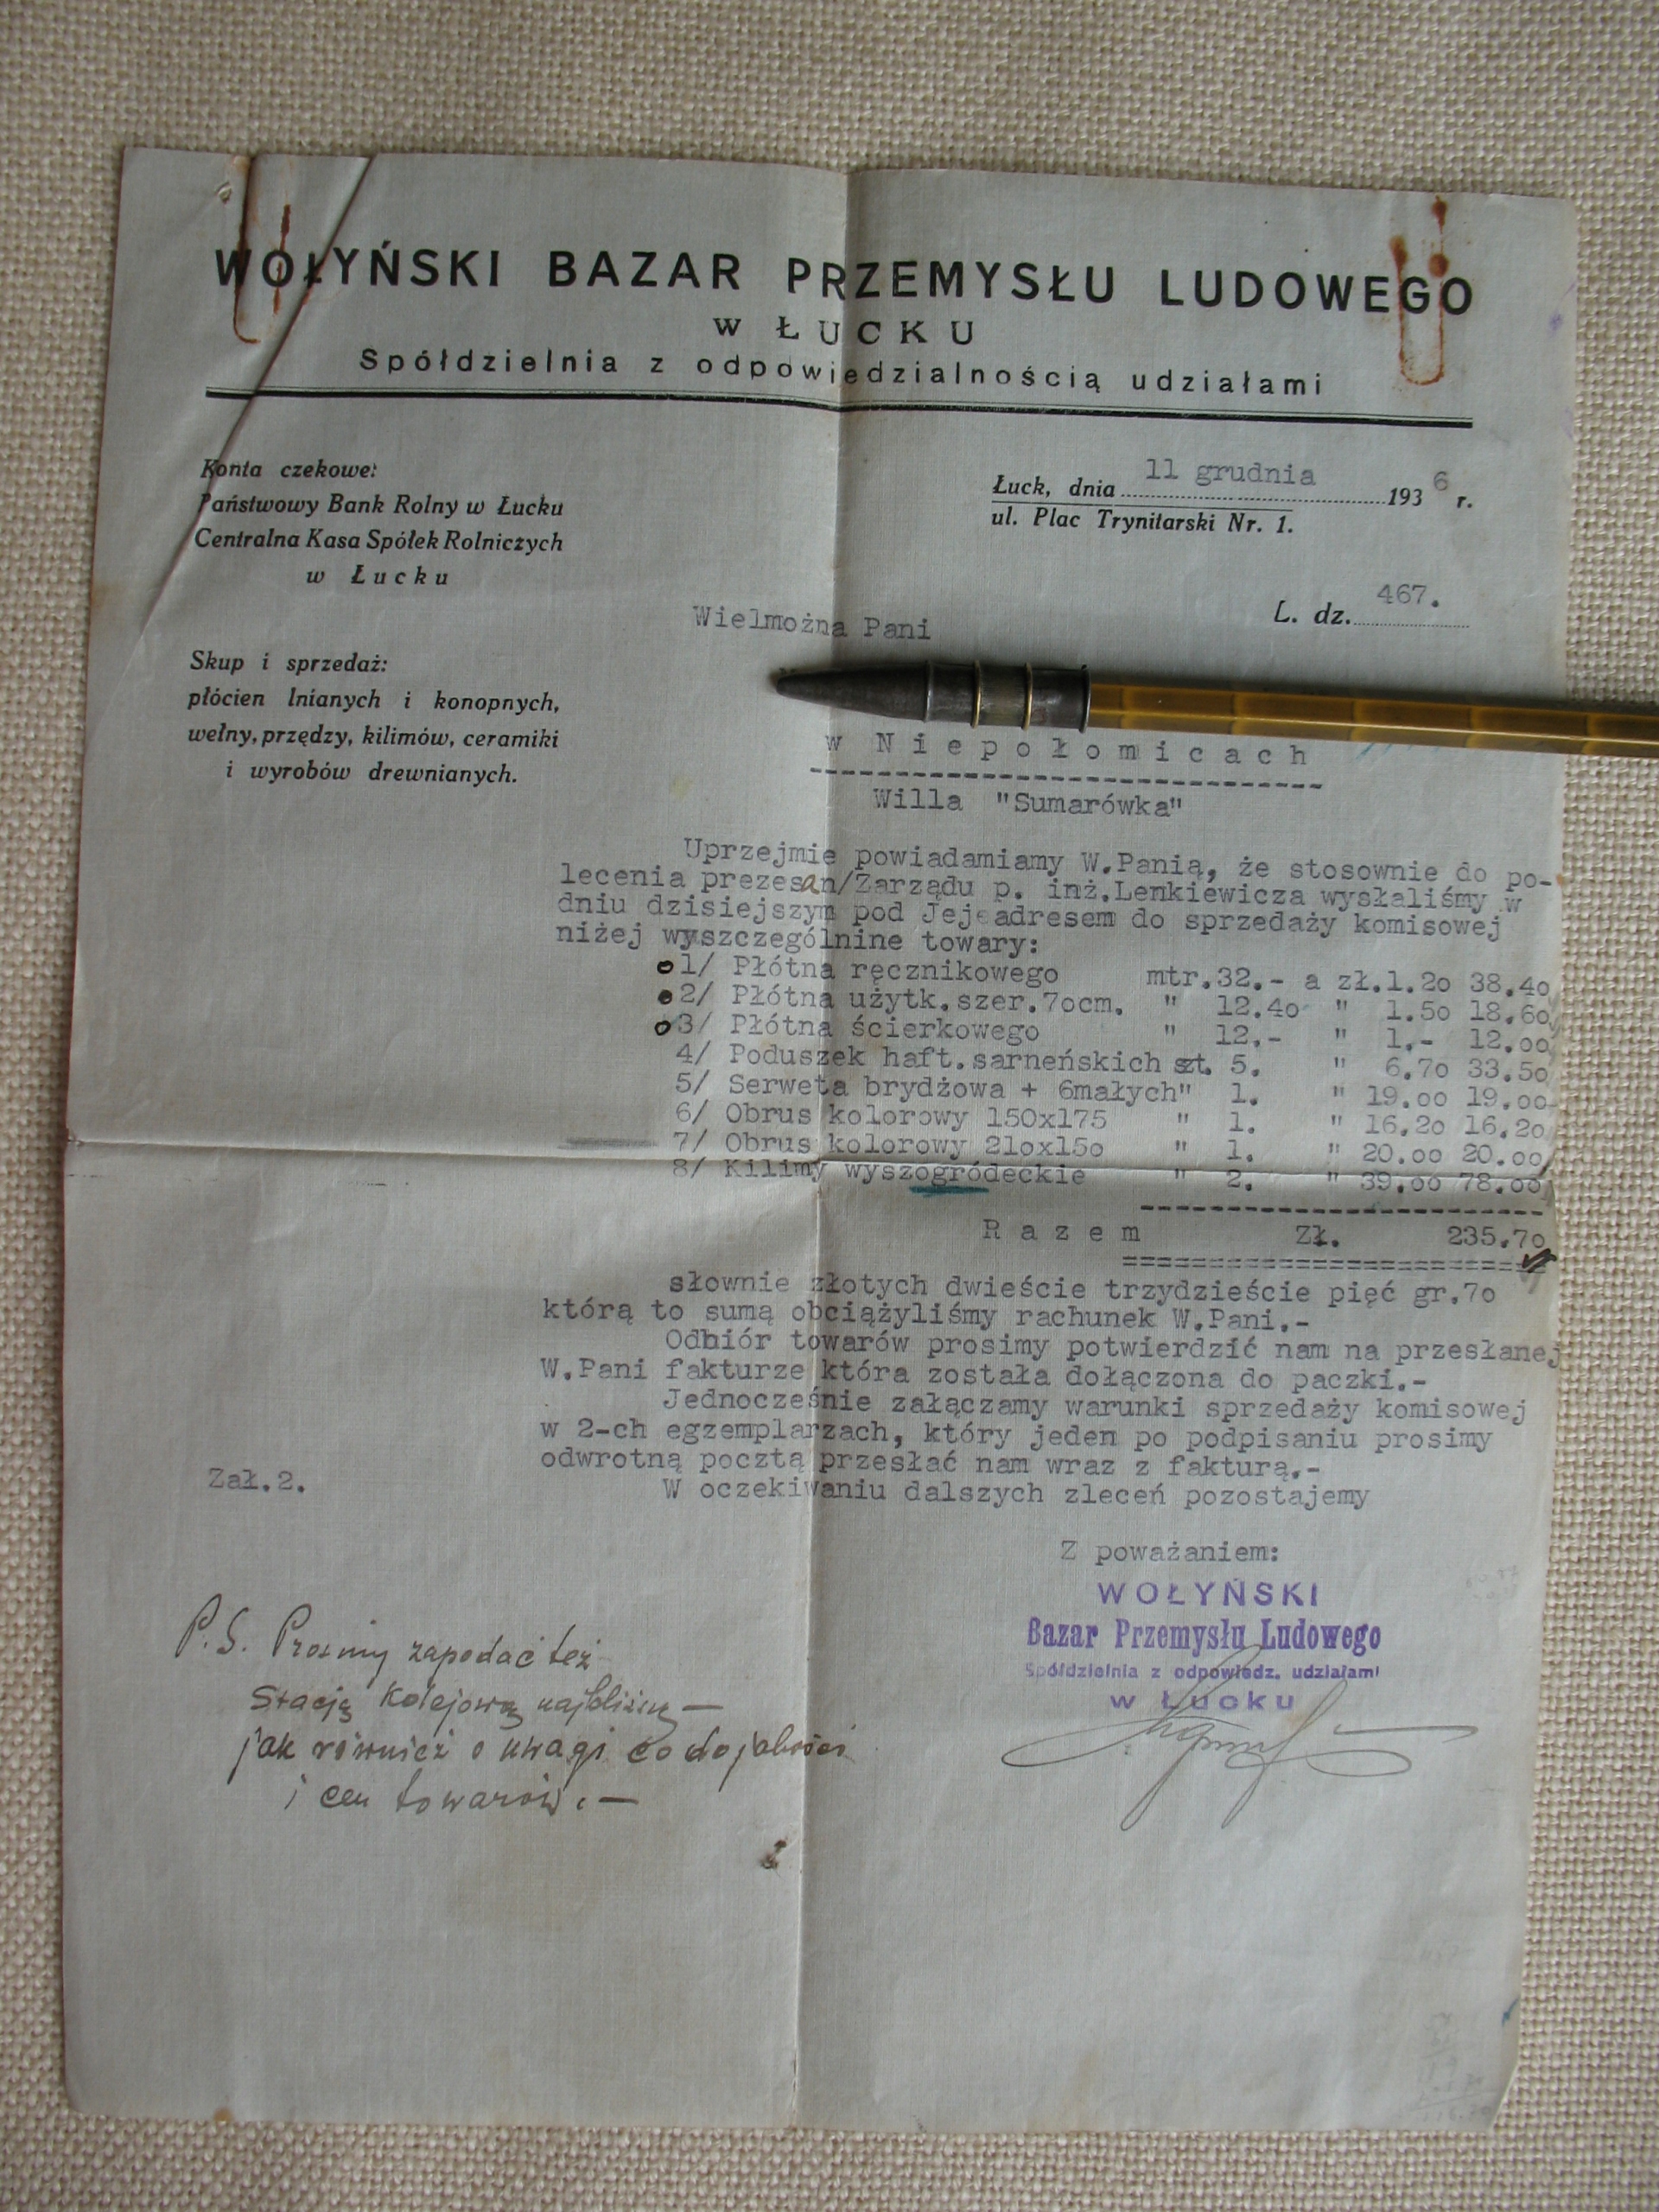 WOŁYŃSKI BAZAR PRZEMYSŁU LUDOWEGO
W ŁUCKU
Spółdzielnia z odpowiedzialnością udziałami
Konta czekowe:
Państwowy Bank Rolny w Łucku
Centralna Kasa Spółek Rolniczych
w Łucku
Łuck, dnia 11 grudnia 1936 r.
ul. Plac Trynitarski Nr. 1.
L. dz. 467.
Wielmożna Pani
Skup i sprzedaż:
płócien lnianych i konopnych,
wełny, przędzy, kilimów, ceramiki
i wyrobów drewnianych.
w Niepołomicach
Willa "Sumarówka"
Uprzejmie powiadamiamy W.Panią, że stosownie do po-
lecenia prezesan/Zarządu p. inż.Lenkiewicza wysłaliśmy w
dniu dzisiejszym pod Jej adresem do sprzedaży komisowej
niżej wyszczególnine towary:
1/ Płótna ręcznikowego mtr.32.- a zł.1.2o 38.4o
2/ Płótna użytk.szer.7ocm. " 12.4o " 1.5o 18.6o
3/ Płótna ścierkowego " 12.- " 1.- 12.oo
4/ Poduszek haft.sarneńskich szt. 5. " 6.7o 33.5o
5/ Serweta brydżowa + 6małych" 1. " 19.oo 19.oo
6/ Obrus kolorowy 150x175 " 1. " 16.2o 16.2o
7/ Obrus kolorowy 21ox15o " 1. " 20.oo 20.oo
8/ Kilimy wyszogródeckie " 2. " 39.oo 78.oo
Razem Zł. 235.7o
słownie złotych dwieście trzydzieście pięć gr.7o
którą to sumą obciążyliśmy rachunek W.Pani.-
Odbiór towarów prosimy potwierdzić nam na przesłanej
W.Pani fakturze która została dołączona do paczki.-
Jednocześnie załączamy warunki sprzedaży komisowej
w 2-ch egzemplarzach, który jeden po podpisaniu prosimy
odwrotną pocztą przesłać nam wraz z fakturą.-
Zał.2.
W oczekiwaniu dalszych zleceń pozostajemy
Z poważaniem:
WOŁYŃSKI
Bazar Przemysłu Ludowego
Spółdzielnia z odpowiedz. udziałami
w Łucku
P.S. Prosimy zapodać też
Stację Kolejową najbliższą —
jak również o uwagi co do jakości
i cen towarów. —